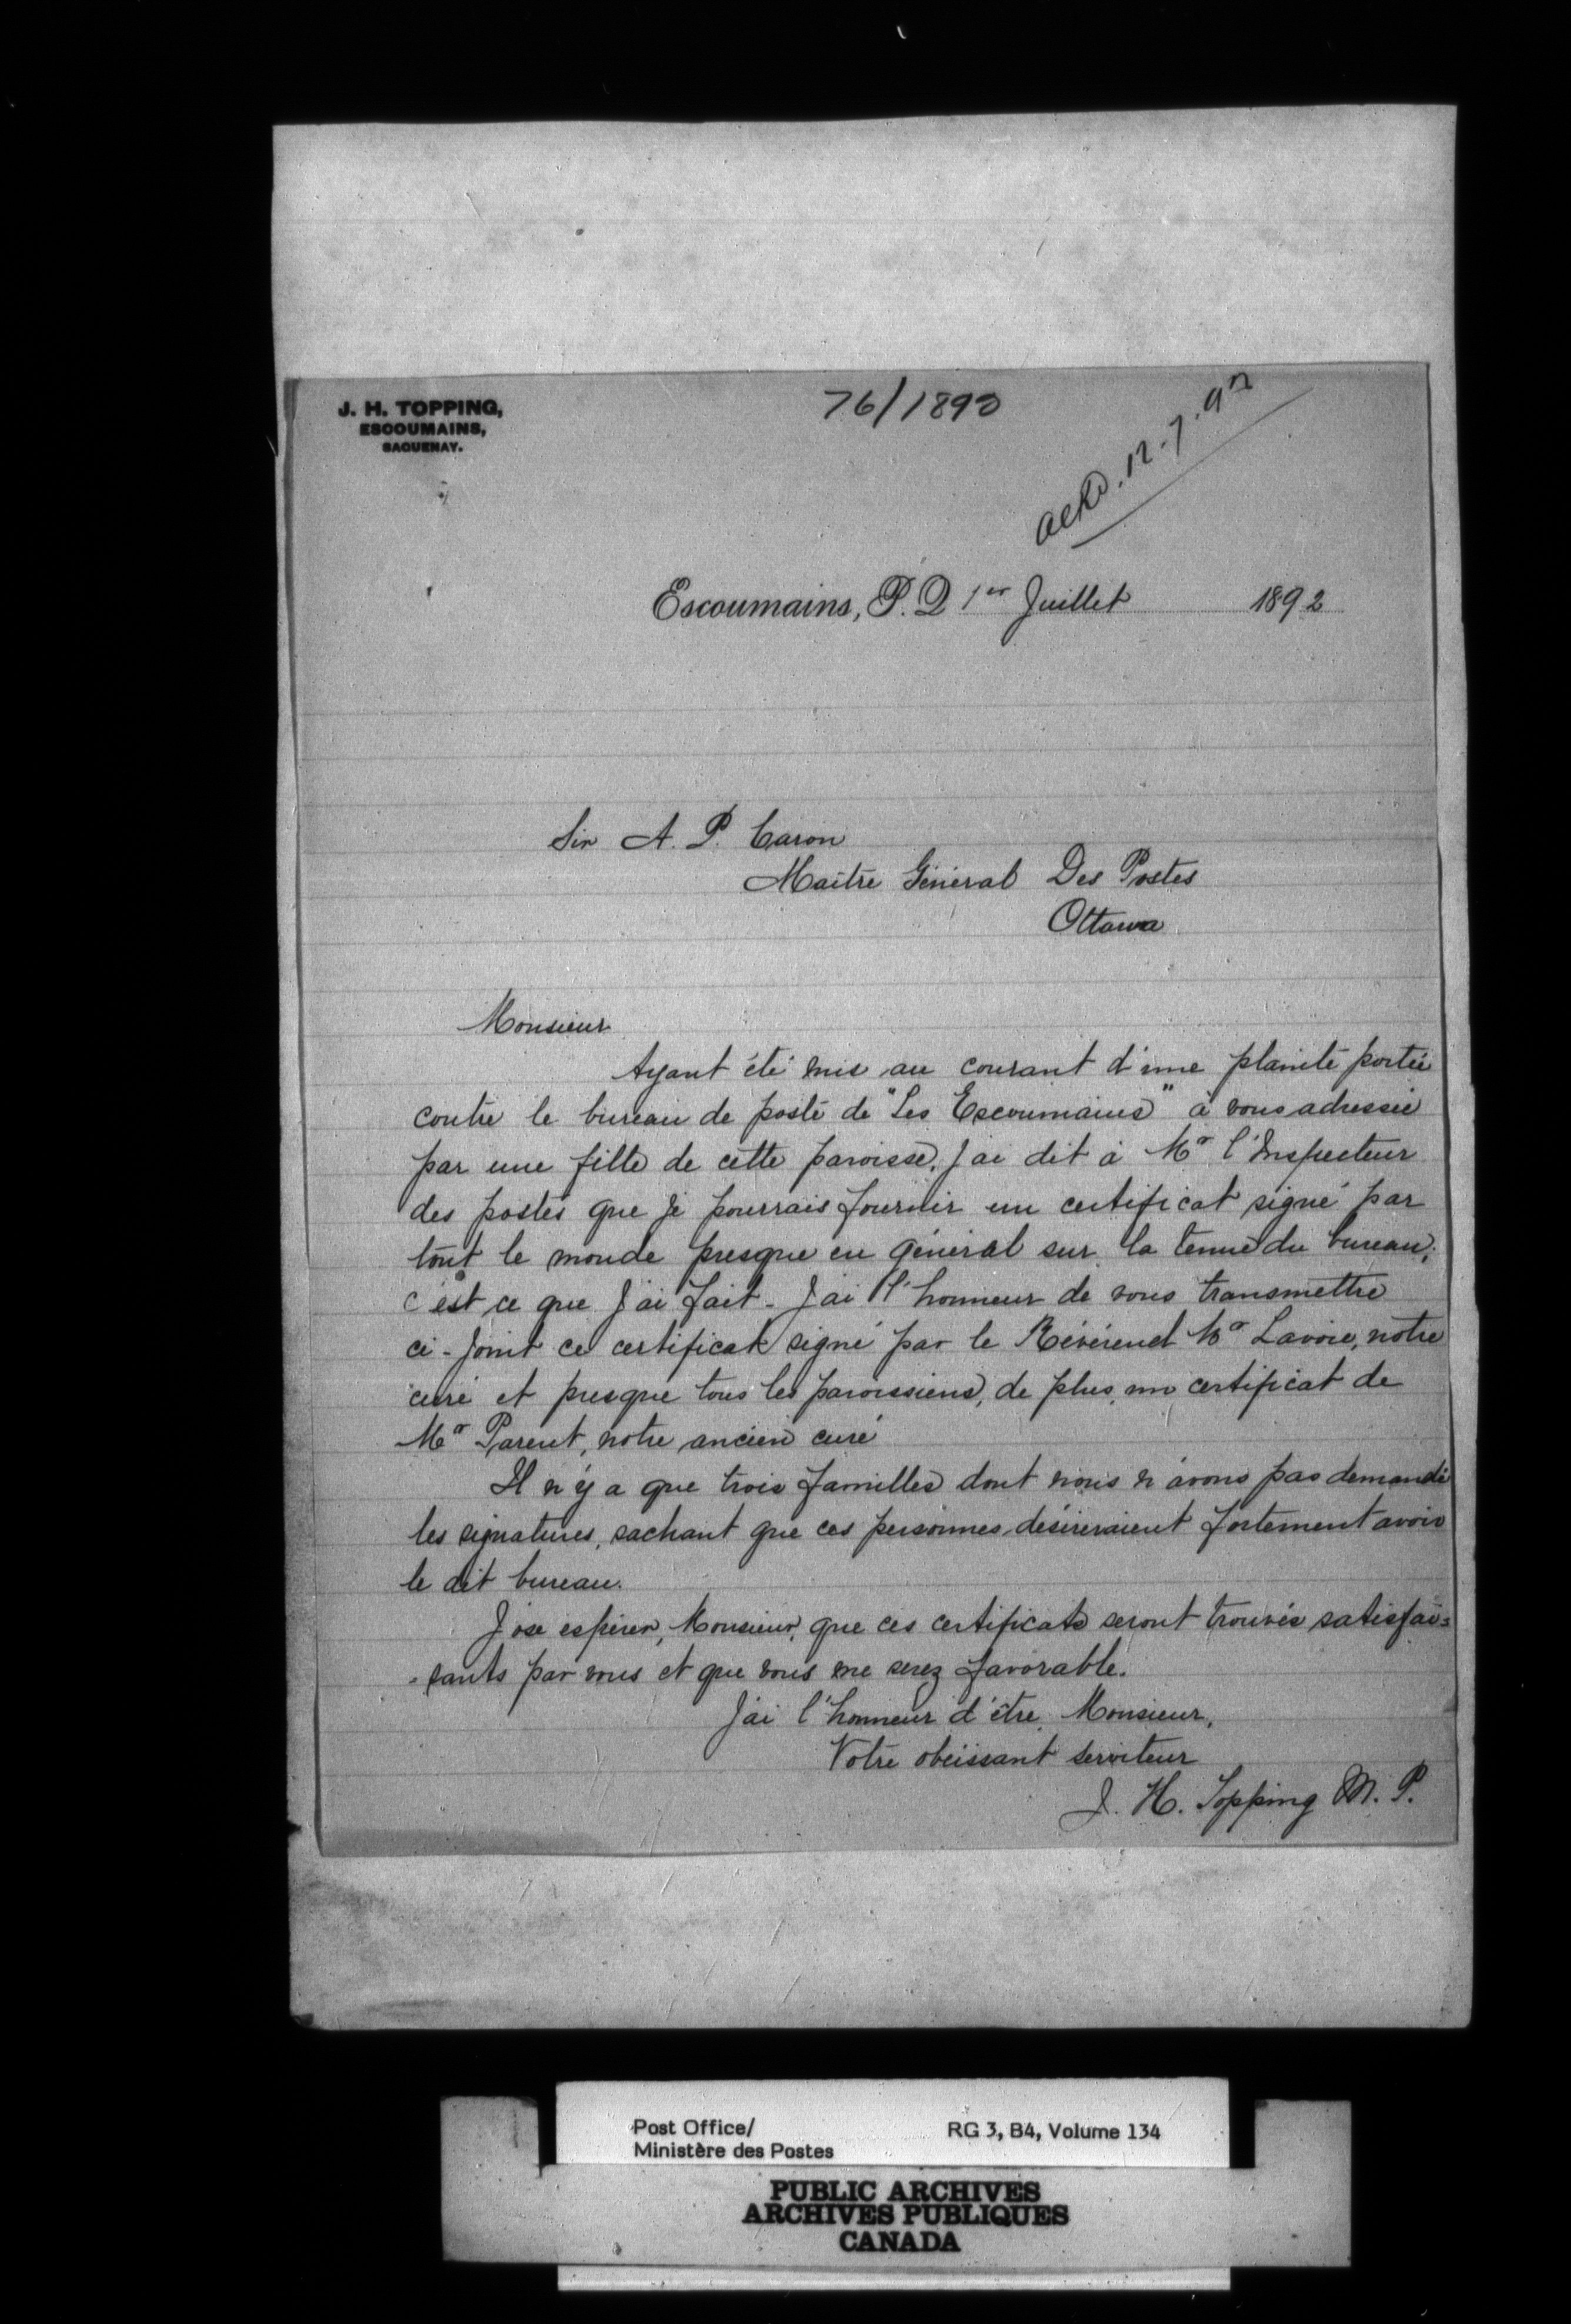 J. H. TOPPING,
ESCOUMAINS,
SAGUENAY.
76/1892
ackd. 12-7-92
Escoumains, P. Q 1er Juillet 1892
Sir A. P. Caron
Maître Général Des Postes
Ottawa
Monsieur
Ayant été mis au courant d'une plainte portée
contre le bureau de poste de "Les Escoumains" à vous adressée
par une fille de cette paroisse, j'ai dit à Mr l'Inspecteur
des postes que je pourrais fournir un certificat signé par
tout le monde presque en général sur la tenue du bureau;
c'est ce que j'ai fait - J'ai l'honneur de vous transmettre
ci-joint ce certificat signé par le Révérend Mr Lavoie, notre
curé et presque tous les paroissiens, de plus, un certificat de
Mr Parent, notre ancien curé
Il n'y a que trois familles dont nous n'avons pas demandé
les signatures, sachant que ces personnes désireraient fortement avoir
le dit bureau.
J'ose espérer, Monsieur, que ces certificats seront trouvés satisfai=
=sants par vous et que vous me serez favorable.
J'ai l'honneur d'être, Monsieur,
Votre obéissant serviteur
J. H. Topping M. P.
Post Office/ RG 3, B4, Volume 134
Ministère des Postes
PUBLIC ARCHIVES
ARCHIVES PUBLIQUES
CANADA